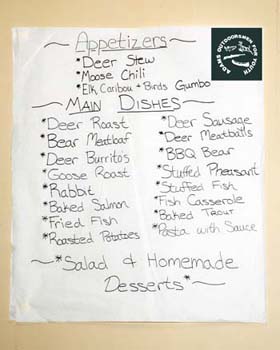 ~Appetizers~
*Deer Stew
*Moose Chili
*Elk, Caribou + Birds Gumbo
~MAIN DISHES~
*Deer Roast
*Bear Meatloaf
*Deer Burritos
*Goose Roast
*Rabbit
*Baked Salmon
*Fried Fish
*Roasted Potatoes
*Deer Sausage
*Deer Meatballs
*BBQ Bear
*Stuffed Pheasant
*Stuffed Fish
*Fish Casserole
*Baked Trout
*Pasta with Sauce
~*Salad & Homemade
Desserts*~
ADAMS OUTDOORSMEN FOR YOUTH